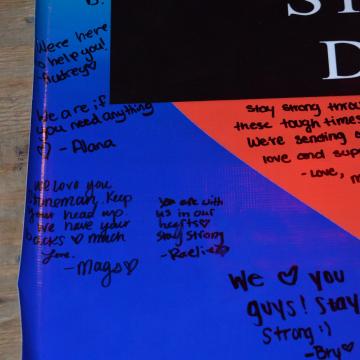 ST
D
We're here
to help you!
-Audrey♡
We are if
you need anything
♡ - Alana
Stay strong throu
these tough times
We're sending
love and sup
- Love, m
We love you
Keep
your head up
We have your
♡ much
love.
- Mags♡
You are with
us in our
hearts♡
Stay strong
- Raelie♡
We ♡ you
guys! Stay
Strong :)
- Bru♡